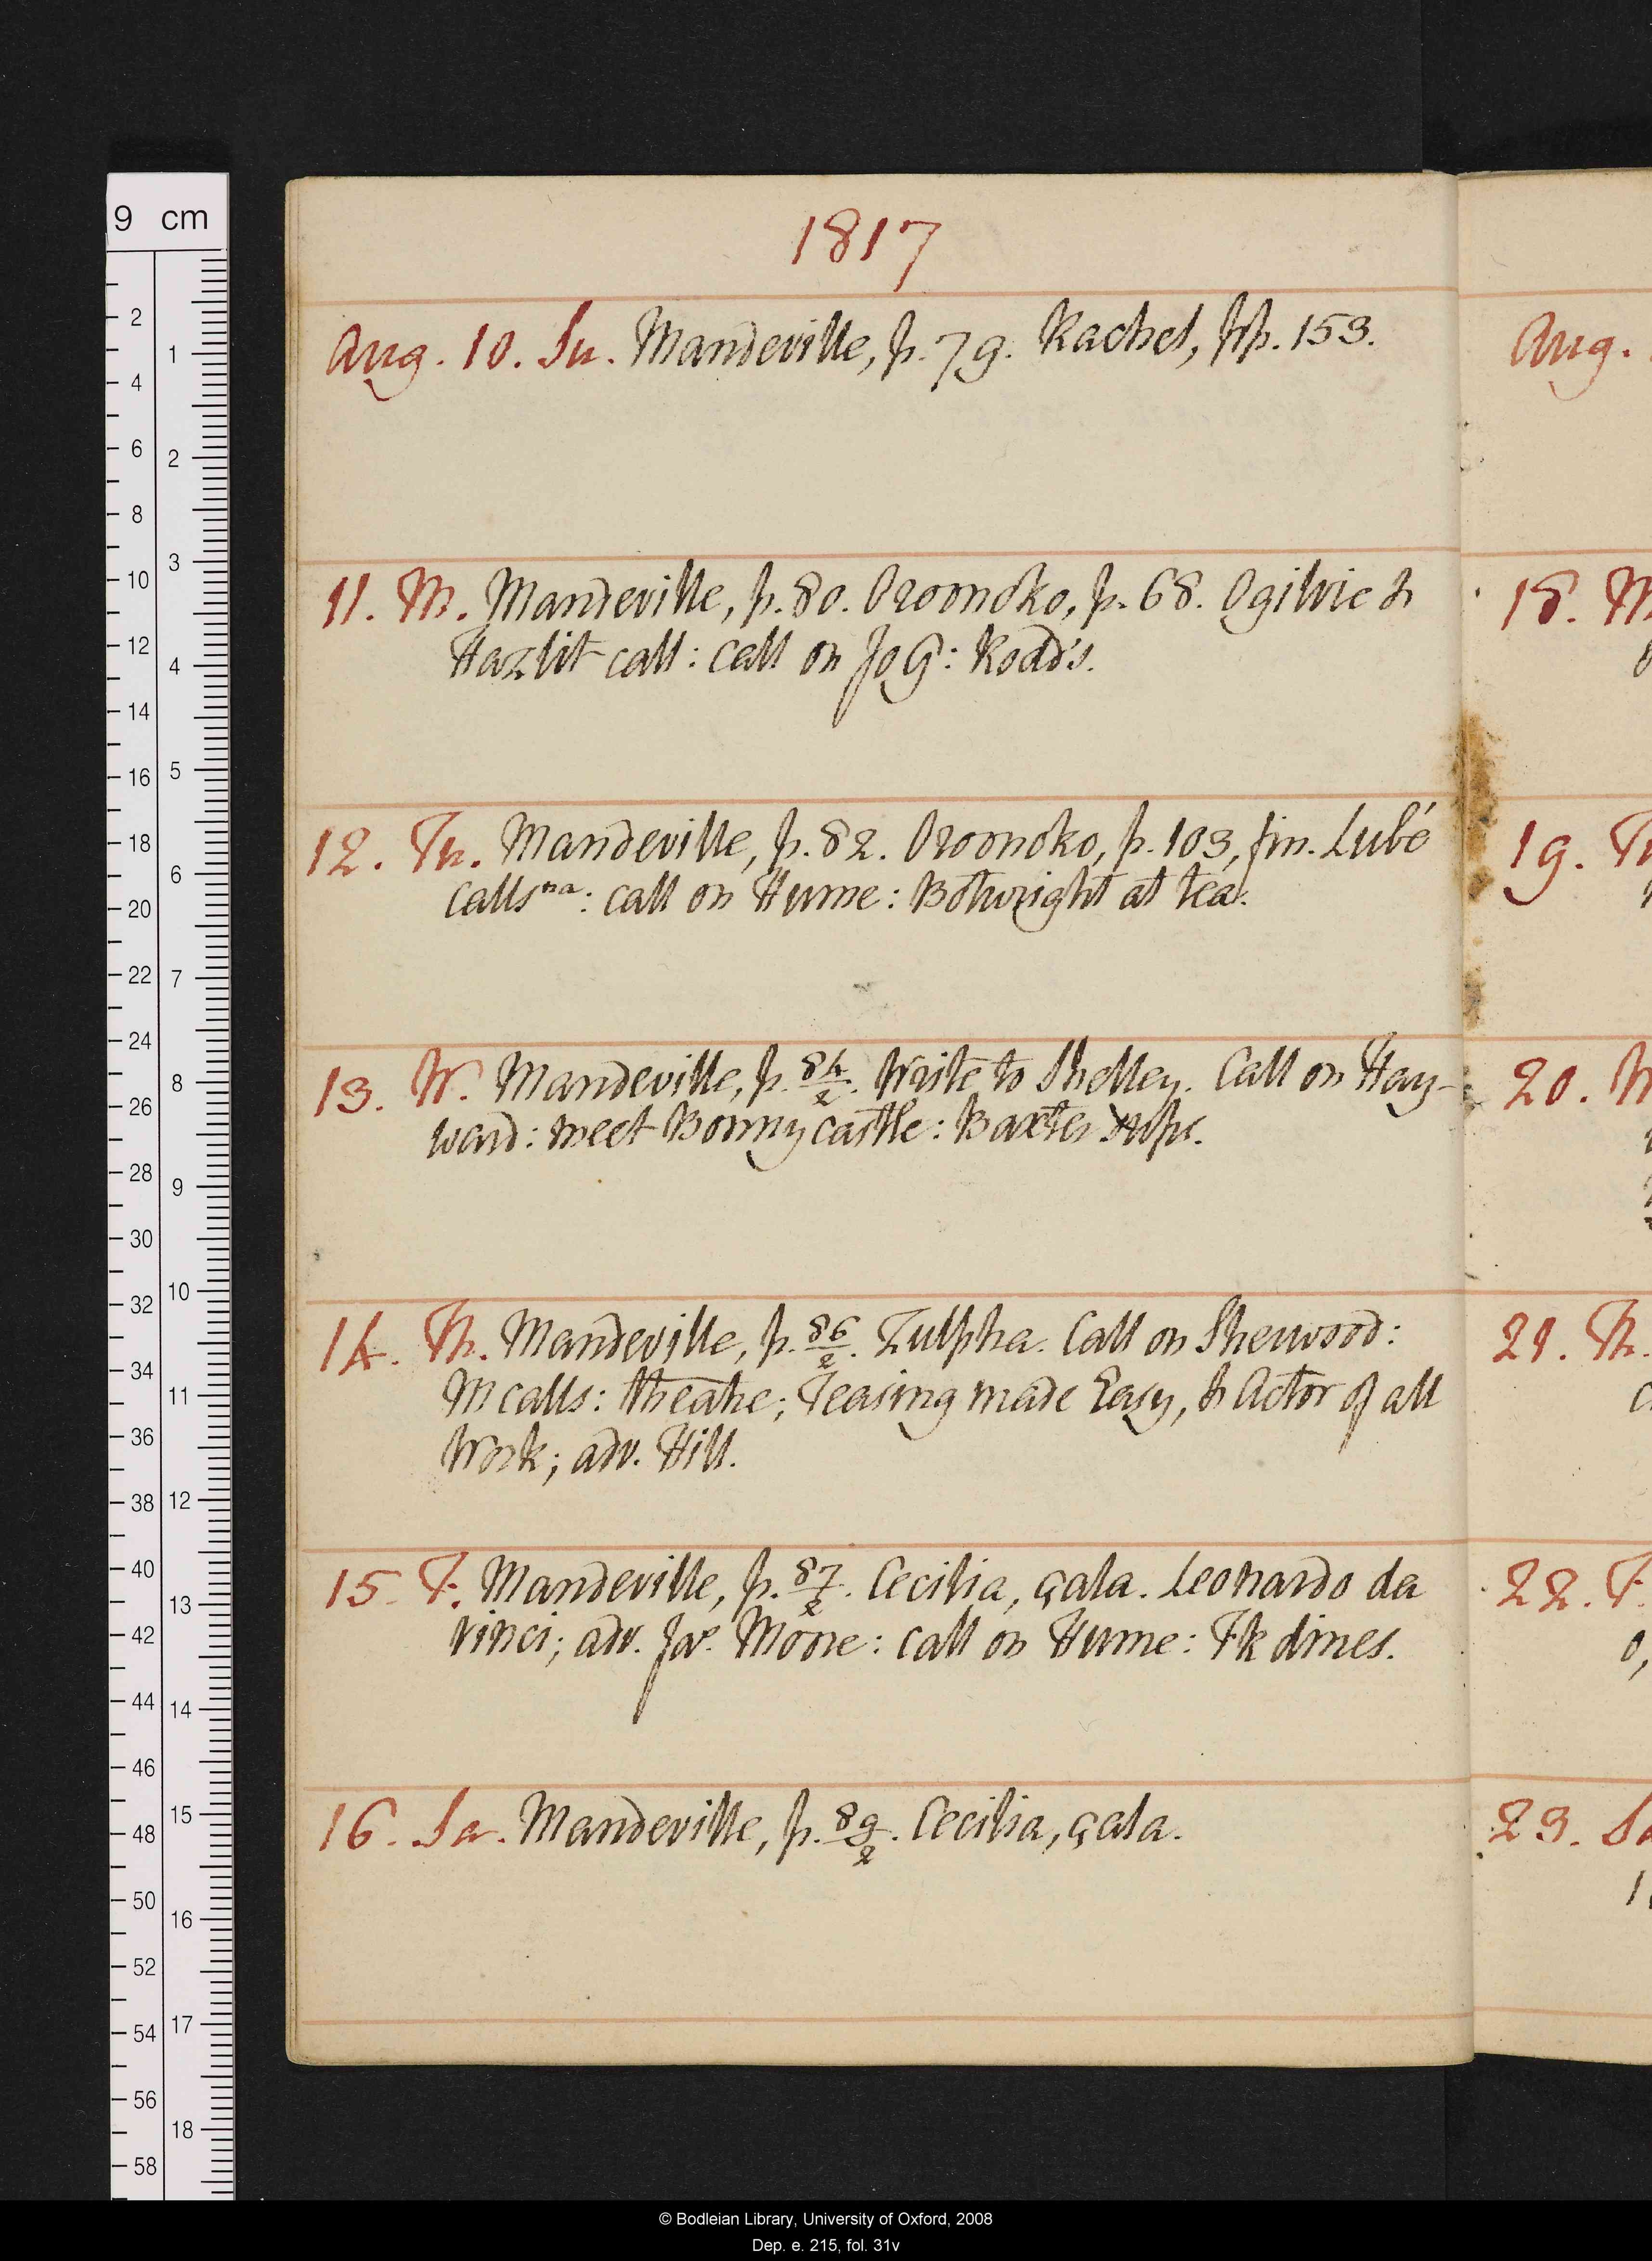 1817
Aug. 10. Su. Mandeville, p. 79. Rachel, pp. 153.
11. M. Mandeville, p. 80. Oroonoko, p. 68. Ogilvie &
Hazlit call: call on JoG: Rodd's.
12. Tu. Mandeville, p. 82. Oroonoko, p. 103, fin. Lubé
calls na: call on Hume: Botwright at tea.
13. W. Mandeville, p. 84/2. Write to Shelley. Call on Hay-
ward: meet Bonnycastle: Baxter sups.
14. Th. Mandeville, p. 86/2. Zulpha. Call on Sherwood:
M calls: theatre; Teasing made Easy, & Actor of all
Work; adv. Hill.
15. F. Mandeville, p. 87/2. Cecilia, çala. Leonardo da
Vinci; adv. Jas. Moore: call on Hume: Fk dines.
16. Sa. Mandeville, p. 89/2. Cecilia, çala.
Aug.
18. M
19. Tu
20.
21. Th.
22. F.
23. Sa
9 cm
2 4 6 8 10 12 14 16 18 20 22 24 26 28 30 32 34 36 38 40 42 44 46 48 50 52 54 56 58
1 2 3 4 5 6 7 8 9 10 11 12 13 14 15 16 17 18
© Bodleian Library, University of Oxford, 2008
Dep. e. 215, fol. 31v